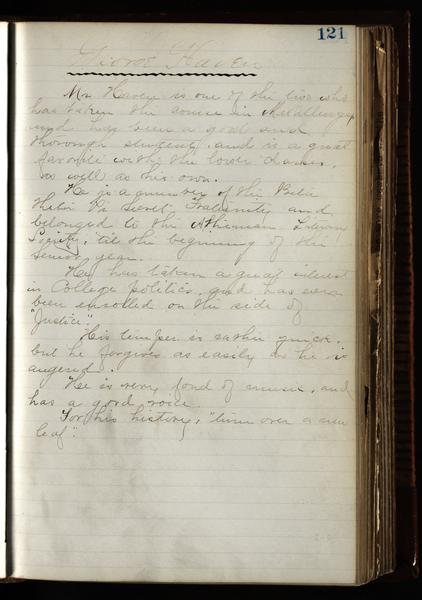 121
George Haven
Mr Haven is one of the two who
has taken the course in Metallurgy
and has been a good and
thorough student and is a great
favorite with the lower classes,
as well as his own.
He is a member of the Beta
Theta Pi Secret Fraternity and
belonged to the Athenian Literary
Society, til the beginning of the
Senior year.
He has taken a great interest
in College politics, and has ever
been enrolled on the side of
"Justice".
His temper is rather quick,
but he forgives as easily as he is
angered.
He is very fond of music, and
has a good voice.
For his history, "turn over a new
leaf".